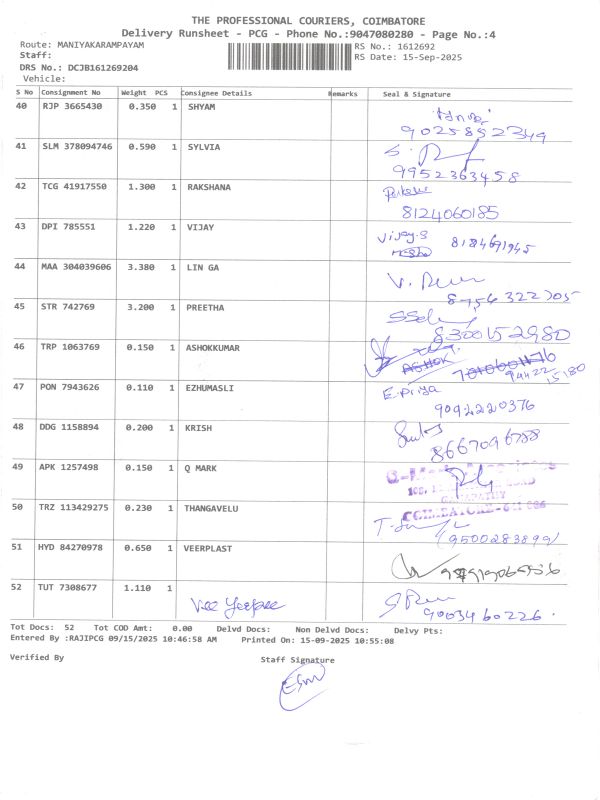 THE PROFESSIONAL COURIERS, COIMBATORE
Delivery Runsheet - PCG - Phone No.:9047080280 - Page No.:4
Route: MANIYAKARAMPAYAM RS No.: 1612692
Staff: RS Date: 15-Sep-2025
DRS No.: DCJB161269204
Vehicle:
S No Consignment No Weight PCS Consignee Details Remarks Seal & Signature
40 RJP 3665430 0.350 1 SHYAM
9025852349
41 SLM 378094746 0.590 1 SYLVIA
9952363458
42 TCG 41917550 1.300 1 RAKSHANA
8124060185
43 DPI 785551 1.220 1 VIJAY
Vijay.S 8184691945
44 MAA 304039606 3.380 1 LIN GA
8756322705
45 STR 742769 3.200 1 PREETHA
8300152980
46 TRP 1063769 0.150 1 ASHOKKUMAR
ASHOK
94422 15180
47 PON 7943626 0.110 1 EZHUMASLI
E.Priya
9092220376
48 DDG 1158894 0.200 1 KRISH
8667096788
49 APK 1257498 0.150 1 Q MARK
COIMBATORE
50 TRZ 113429275 0.230 1 THANGAVELU
9500283899
51 HYD 84270978 0.650 1 VEERPLAST
52 TUT 7308677 1.110 1
Vee Yeepee
9003460226
Tot Docs: 52 Tot COD Amt: 0.00 Delvd Docs: Non Delvd Docs: Delvy Pts:
Entered By :RAJIPCG 09/15/2025 10:46:58 AM Printed On: 15-09-2025 10:55:08
Verified By Staff Signature